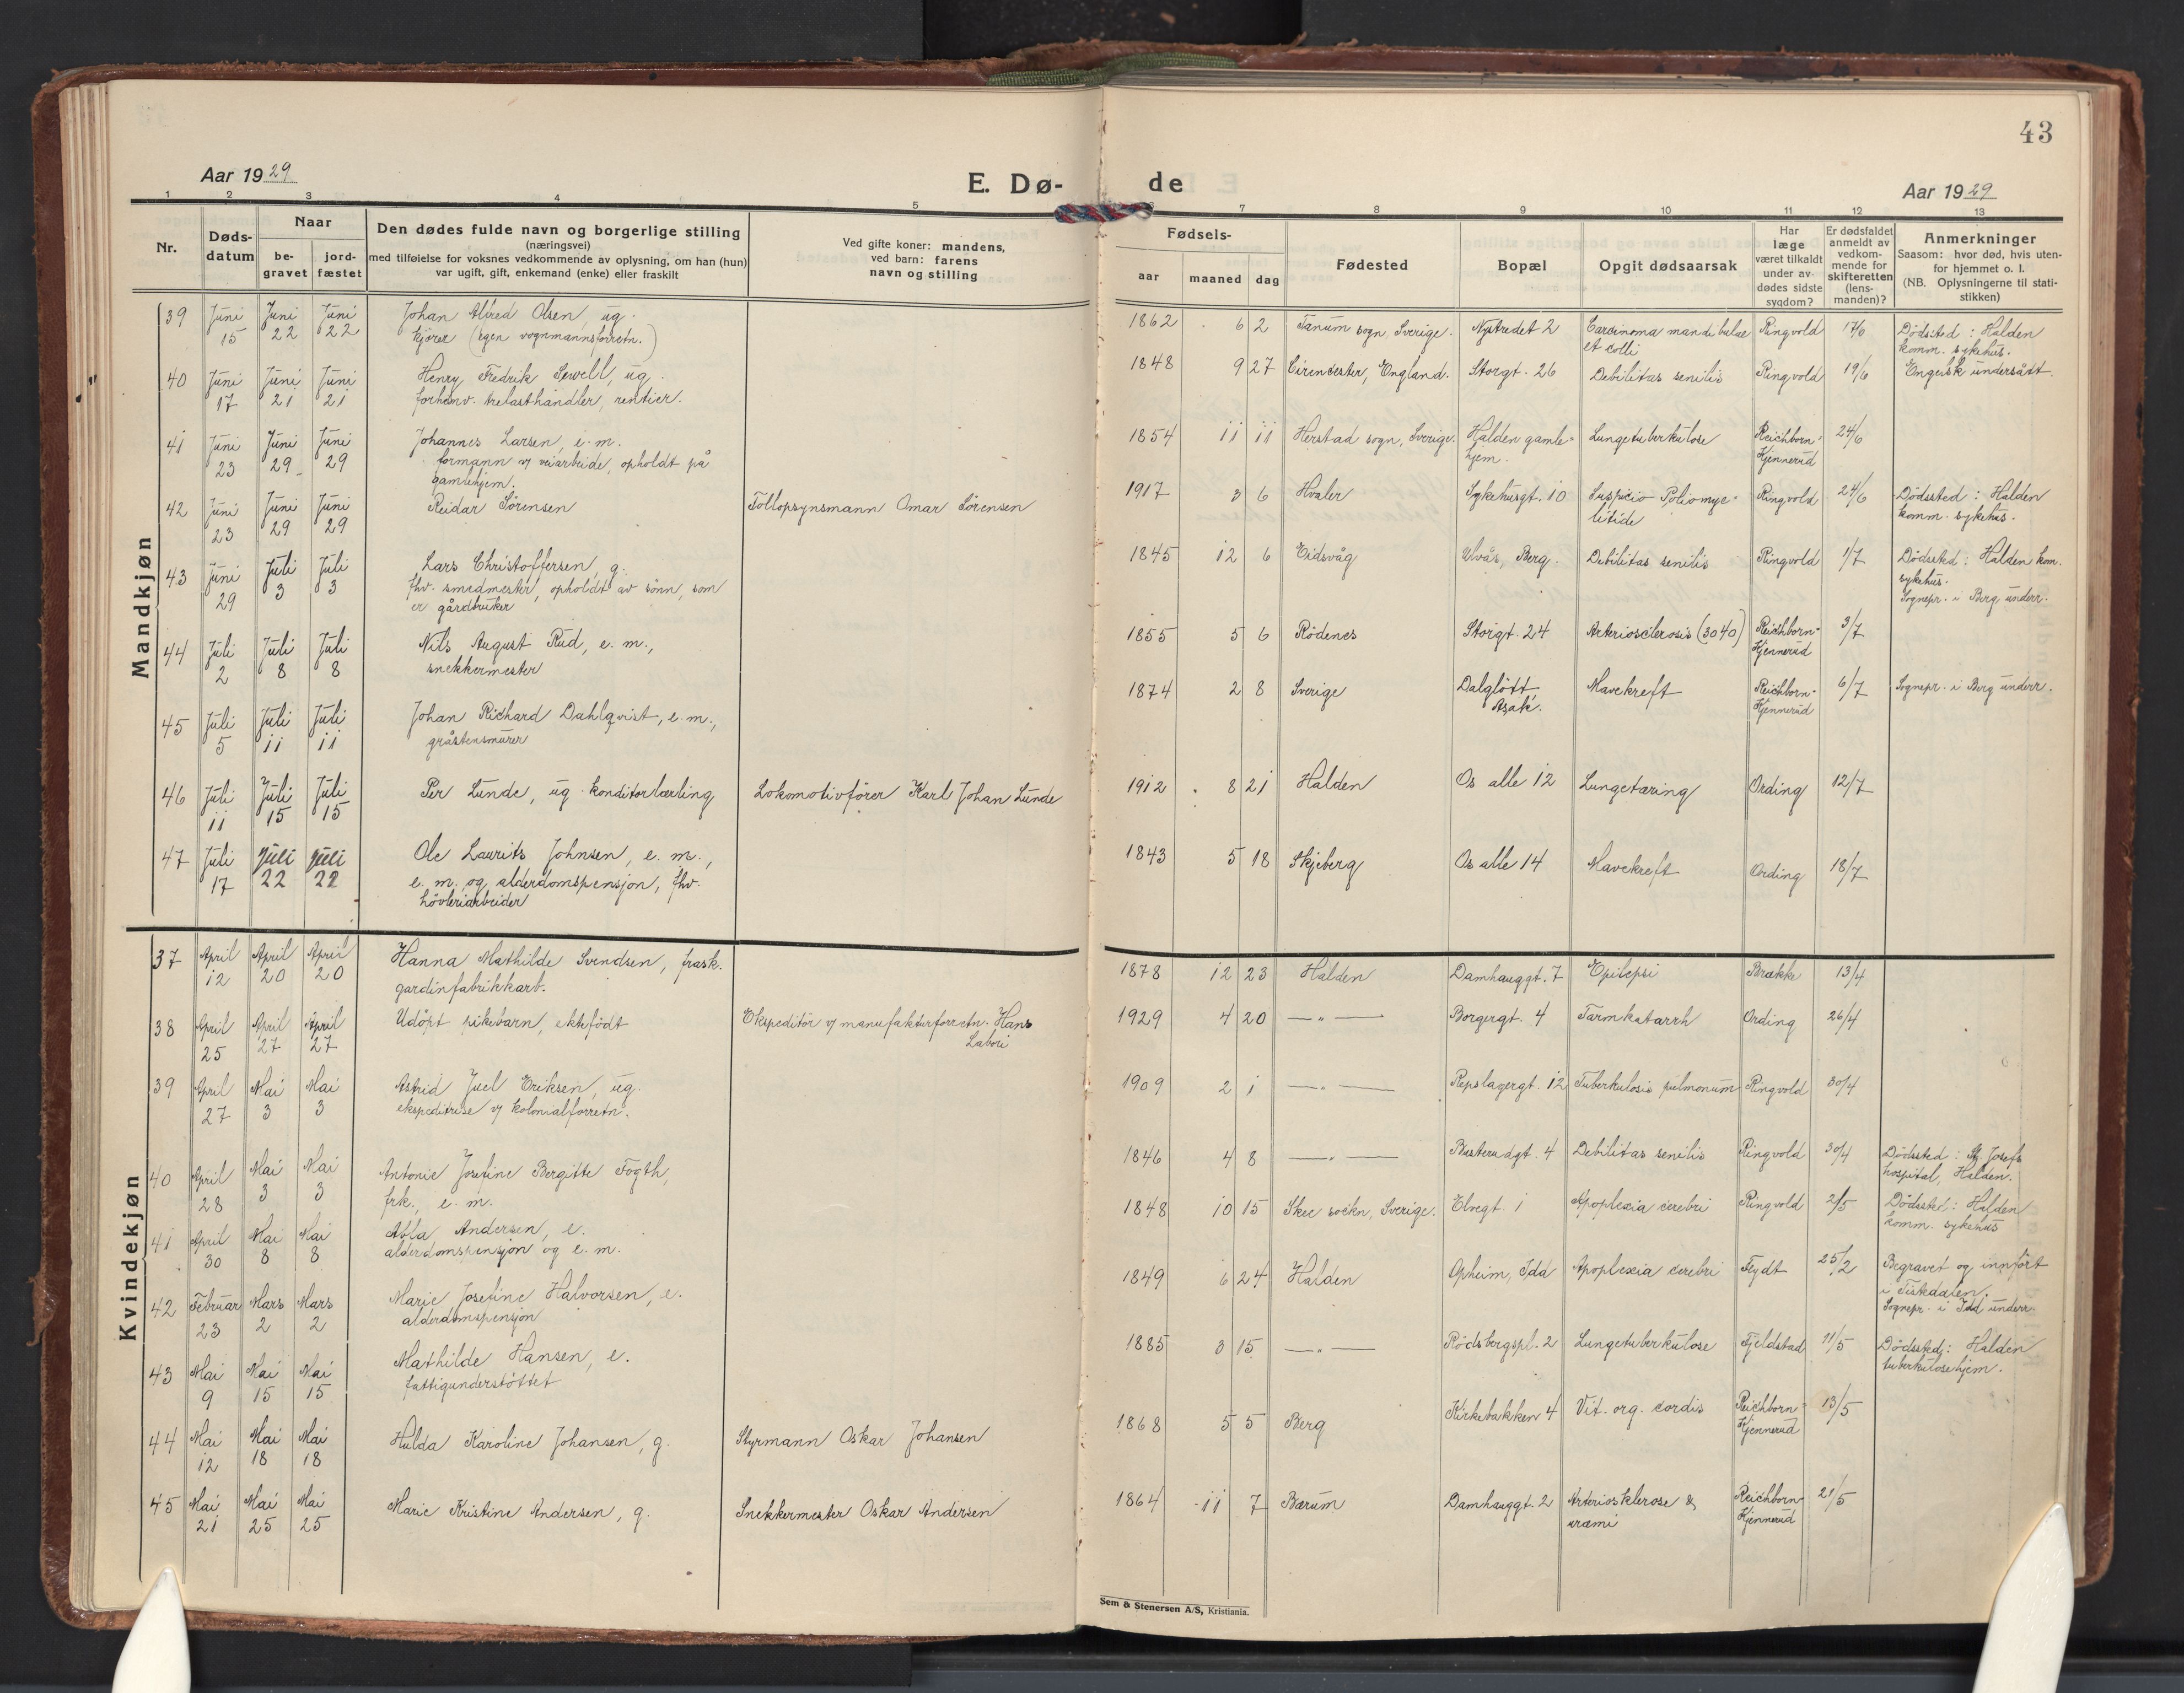 43
Aar 1929
E. Dø-
de
Aar 1929
1 2 3 4 5 6 7 8 9 10 11 12 13
Nr.
Døds-
datum
Naar
be-
gravet
jord-
fæstet
Den dødes fulde navn og borgerlige stilling
(næringsvei)
med tilføielse for voksnes vedkommende av oplysning, om han (hun)
var ugift, gift, enkemand (enke) eller fraskilt
Ved gifte koner: mandens,
ved barn: farens
navn og stilling
Fødsels-
aar maaned dag
Fødested
Bopæl
Opgit dødsaarsak
Har
læge
været tilkaldt
under av-
dødes sidste
sygdom?
Er dødsfaldet
anmeldt av
vedkom-
mende for
skifteretten
(lens-
manden)?
Anmerkninger
Saasom: hvor død, hvis uten-
for hjemmet o. l.
(NB. Oplysningerne til stati-
stikken)
Mandkjøn
39 Juni 15 Juni 22 Juni 22 Johan Alfred Olsen, ug.
kjører (egen vognmannsforretn.)
1862 6 2 Tanum sogn, Sverige. Nystredet 2 Carcinoma mandibulae
et colli
Ringvold 17/6 Dödssted: Halden
komm. sykehus.
40 Juni 17 Juni 21 Juni 21 Henry Fredrik Sewell, ug.
forhenv. trelasthandler, rentier.
1848 9 27 Cirencester, England. Storgt. 26 Debilitas senilis Ringvold 19/6 Engelsk undersått.
41 Juni 23 Juni 29 Juni 29 Johannes Larsen, e. m.
formann v/ veiarbeide, opholdt på
gamlehjem.
1854 11 11 Herstad sogn, Sverige. Halden gamle-
hjem.
Lungetuberkulose Reichborn-
Kjennerud
24/6
42 Juni 23 Juni 29 Juni 29 Reidar Sörensen Tollopsynsmann Omar Sörensen
1917 3 6 Hvaler Sykehusgt. 10 Suspicio Poliomye-
litide
Ringvold 24/6 Dödssted: Halden
komm. sykehus.
43 Juni 29 Juli 3 Juli 3 Lars Christoffersen, g.
fhv. smedmester, opholdt av sönn, som
er gårdbruker
1845 12 6 Eidsvåg Ulvås, Berg. Debilitas senilis Ringvold 1/7 Dödssted: Halden kom.
sykehus.
Sognepr. i Berg underr.
44 Juli 2 Juli 8 Juli 8 Nils August Rud, e. m.,
snekkermester
1855 5 6 Rödenes Storgt. 24 Arteriosclerosis (3040) Reichborn-
Kjennerud
3/7
45 Juli 5 Juli 11 Juli 11 Johan Richard Dahlqvist, e. m.,
gråstensmurer
1874 2 8 Sverige Dalglött,
Asak.
Mavekreft Reichborn-
Kjennerud
6/7 Sognepr. i Berg underr.
46 Juli 11 Juli 15 Juli 15 Per Lunde, ug. konditorlærling Lokomotivförer Karl Johan Lunde
1912 8 21 Halden Os alle 12 Lungetæring Ording 12/7
47 Juli 17 Juli 22 Juli 22 Ole Laurits Johnsen, e. m.,
e. m. og alderdomspensjon, fhv.
hövleriarbeider
1843 5 18 Skjeberg Os alle 14 Mavekreft Ording 18/7
Kvindekjøn
37 April 12 April 20 April 20 Hanna Mathilde Svendsen, frask.
gardinfabrikkarb.
1878 12 23 Halden Damhauggt. 7 Epilepsi Brække 13/4
38 April 25 April 27 April 27 Udöpt pikebarn, ektefödt Ekspeditör v/ manufakturforretn. Hans
Labori
1929 4 20 —"— Borgergt. 4 Tarmkatarrh Ording 26/4
39 April 27 Mai 3 Mai 3 Astrid Juel Eriksen, ug.
ekspeditrise v/ kolonialforretn.
1909 2 1 —"— Repslagergt. 12 Tuberkulosis pulmonum Ringvold 30/4
40 April 28 Mai 3 Mai 3 Antonie Josefine Bergitte Fogth,
frk., e. m.
1846 4 8 —"— Busterudgt. 4 Debilitas senilis Ringvold 30/4 Dödssted: St. Josefs
hospital, Halden.
41 April 30 Mai 8 Mai 8 Abla Andersen, e.
alderdomspensjon og e. m.
1848 10 15 Skee sockn, Sverige. Elvegt. 1 Apoplexia cerebri Ringvold 2/5 Dödssted: Halden
komm. sykehus
42 Februar 23 Mars 2 Mars 2 Marie Josefine Halvorsen, e.
alderdomspensjon
1849 6 24 Halden Opheim, Idd Apoplexia cerebri Feydt 25/2 Begravet og innfört
i Tistedalen.
Sognepr. i Idd underr.
43 Mai 9 Mai 15 Mai 15 Mathilde Hansen, e.
fattigunderstöttet
1885 3 15 —"— Rödsbergspl. 2 Lungetuberkulose Fjeldstad 11/5 Dödssted: Halden
tuberkulosehjem.
44 Mai 12 Mai 18 Mai 18 Hulda Karoline Johansen, g. Styrmann Oskar Johansen
1868 5 5 Berg Kirkebakken 4 Vit. org. cordis Reichborn-
Kjennerud
13/5
45 Mai 21 Mai 25 Mai 25 Marie Kristine Andersen, g. Snekkermester Oskar Andersen
1864 11 7 Bærum Damhauggt. 2 Arteriosklerose &
uræmi
Reichborn-
Kjennerud
21/5
Sem & Stenersen A/S, Kristiania.